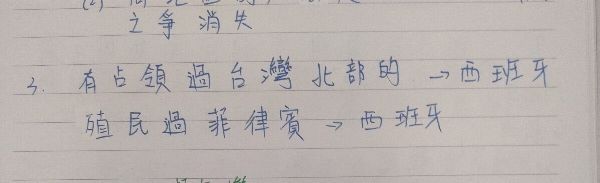 之爭消失
3. 有占領過台灣北部的→西班牙
殖民過菲律賓→西班牙